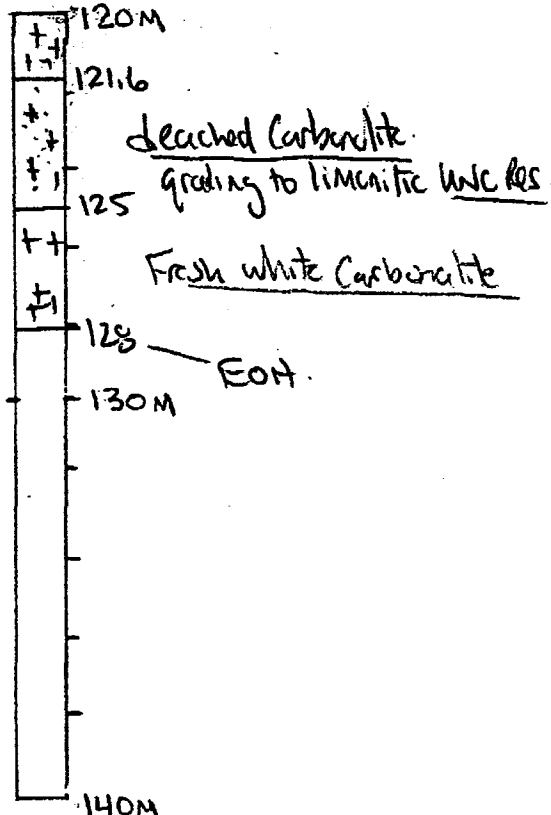 120M
121.6
Leached Carbonatite.
grading to limonitic UNC Res
125
Fresh white Carbonatite
128
EOH.
130M
140M